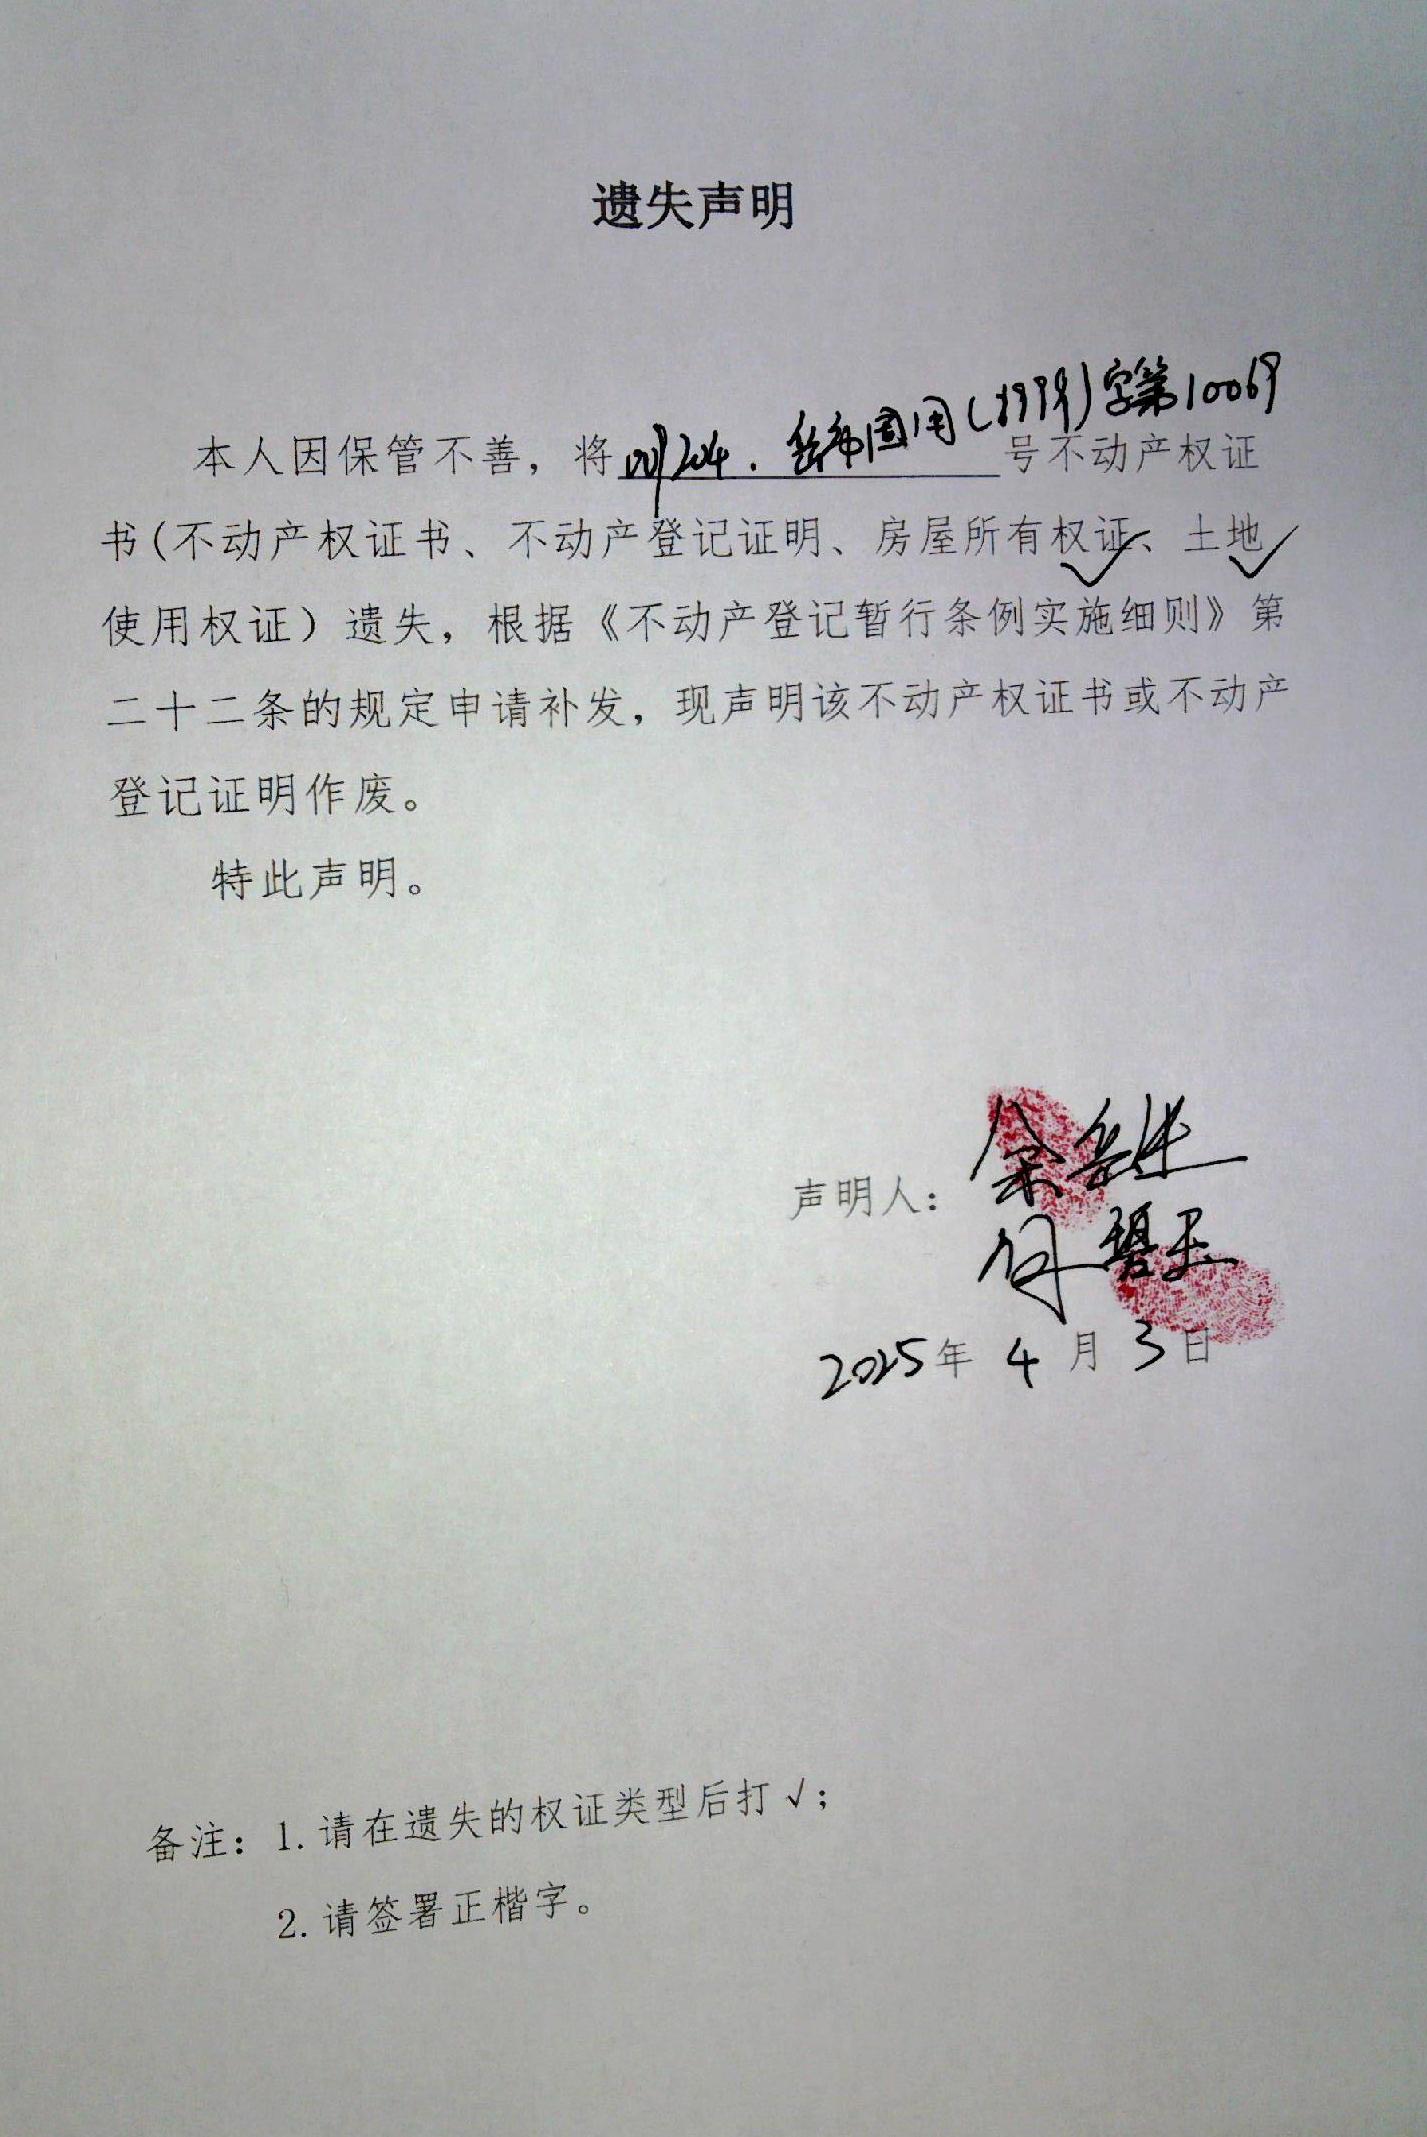 遗失声明
本人因保管不善，将 204. 岳市国用(1999)字第10069 号不动产权证
书(不动产权证书、不动产登记证明、房屋所有权证√、土地√
使用权证）遗失，根据《不动产登记暂行条例实施细则》第
二十二条的规定申请补发，现声明该不动产权证书或不动产
登记证明作废。
特此声明。
声明人：余岳
何碧玉
2025年 4 月 3 日
备注：1.请在遗失的权证类型后打√；
2.请签署正楷字。